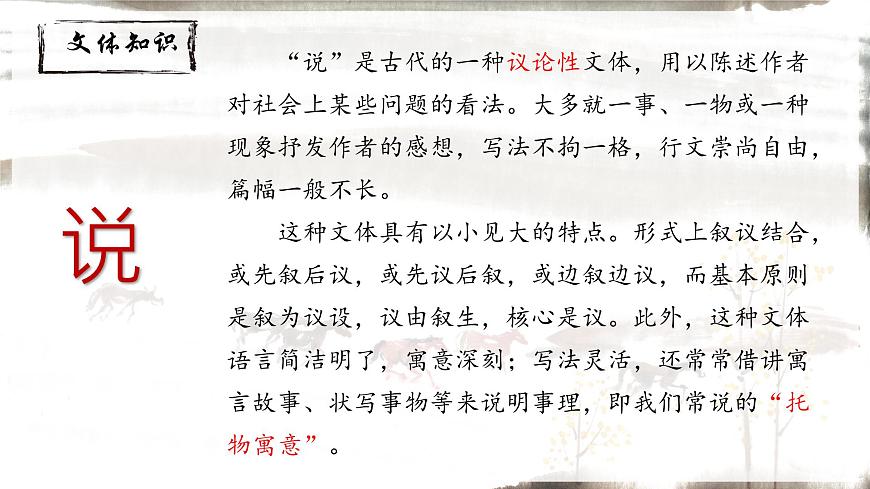 文体知识
说
“说”是古代的一种议论性文体，用以陈述作者
对社会上某些问题的看法。大多就一事、一物或一种
现象抒发作者的感想，写法不拘一格，行文崇尚自由，
篇幅一般不长。
这种文体具有以小见大的特点。形式上叙议结合，
或先叙后议，或先议后叙，或边叙边议，而基本原则
是叙为议设，议由叙生，核心是议。此外，这种文体
语言简洁明了，寓意深刻；写法灵活，还常常借讲寓
言故事、状写事物等来说明事理，即我们常说的“托
物寓意”。